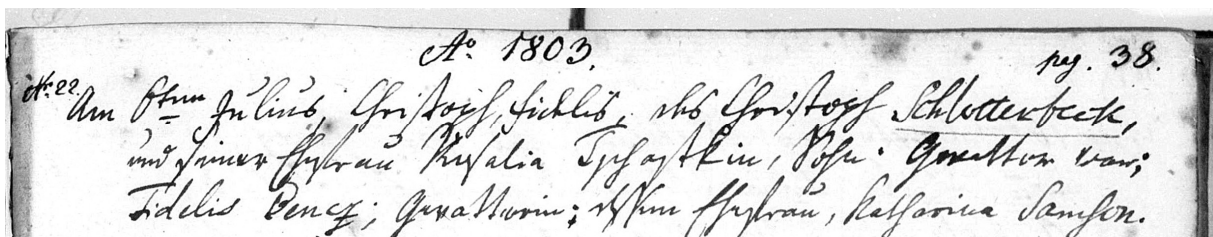 Aº 1803. pag. 38.
Nº 22. Am 6ten Julius, Christoph, Fidelis, des Christoph Schlotterbeck,
und seiner Ehefrau Rosalia Tschastkin, Sohn. Gevatter war;
Fidelis Dencz; Gevatterin; dessen Ehefrau, Katharina Samson.